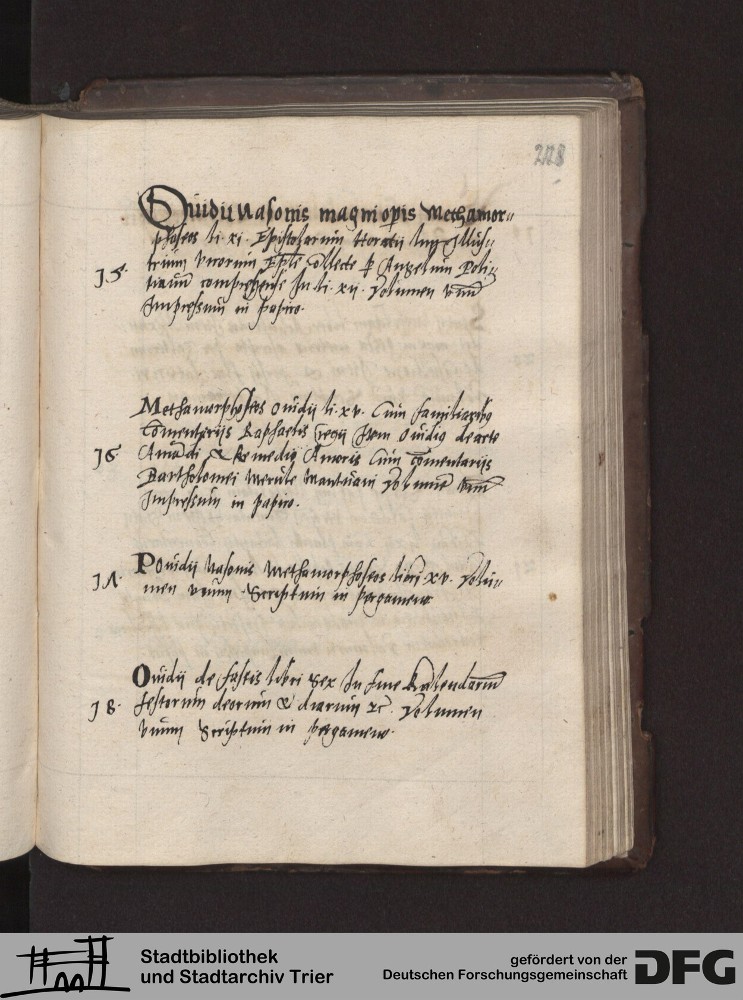 228
Ouidii Nasonis magni op̲is Methamor=
phoseos li. xi. Epistolarum
trium virorum Ep̃le collecte p̲ Angelum Poli=
15.
tianum comprehense In li. xii. Volumen vnũ
Impressum in papiro.
Methamorphoseos Ouidij li. xv. Cum familiaribꝫ
Comentarijs Raphaelis regij Item Ouidij de arte
16
Amãdi & Remedij Amoris Cum Comentarijs
Bartholomei Merule Mantuani Volumẽ vnũ
Impressum in papiro.
P Ouidij Nasonis Methamorphoseos libri xv. Volu=
17.
men vnum Scriptum in pergameno
Ouidij de fastis libri sex In fine Kalendariũ
18.
festorum deorum & dearum ⁊c̃. Volumen
vnum Scriptum in pergameno.
Stadtbibliothek
und Stadtarchiv Trier
gefördert von der
Deutschen Forschungsgemeinschaft
DFG